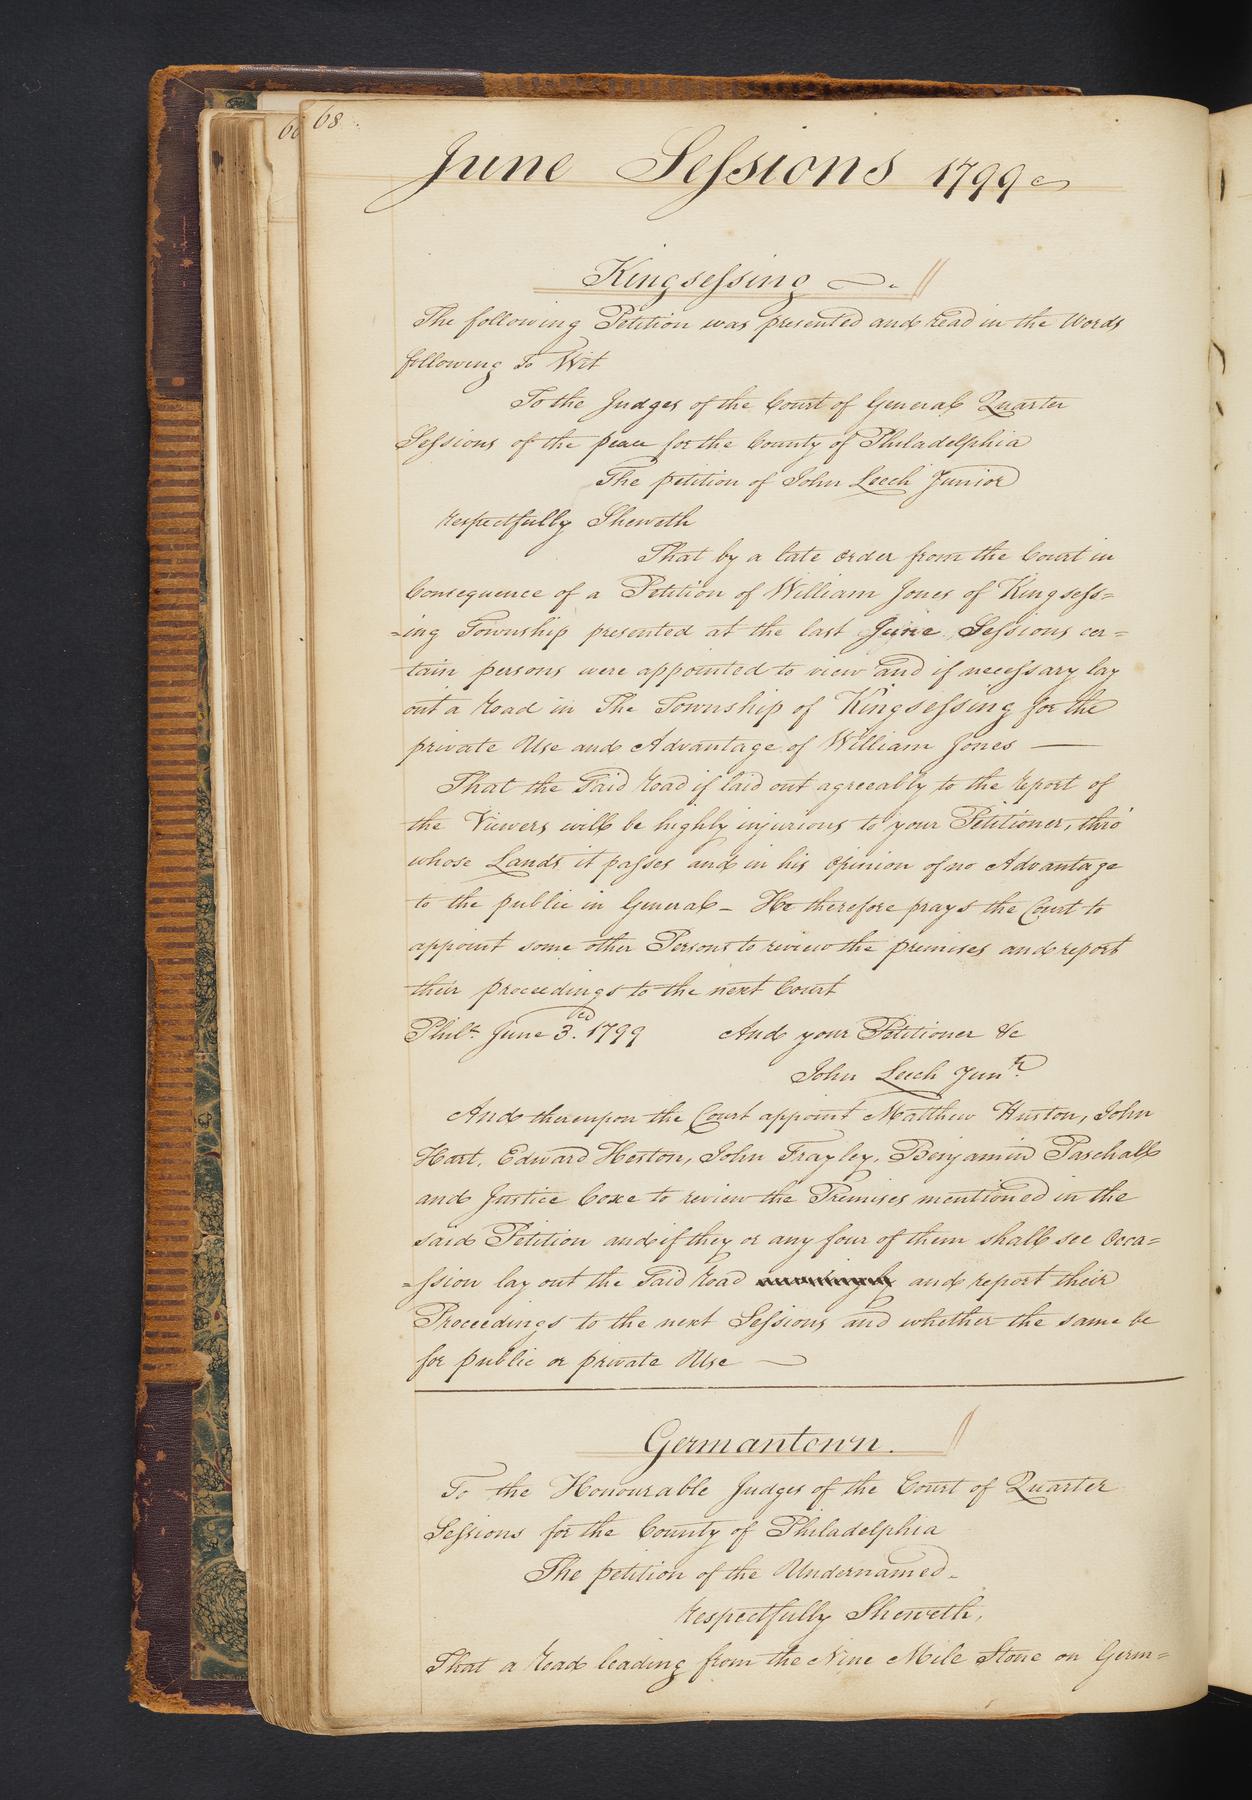 66
68
June Sessions 1799
Kingsessing
The following Petition was presented and read in the Words
following To Wit
To the Judges of the Court of General Quarter
Sessions of the peace for the County of Philadelphia
The petition of John Leech Junior
respectfully Sheweth
That by a late order from the Court in
Consequence of a Petition of William Jones of Kingsess=
=ing Township presented at the last June Sessions cer=
tain persons were appointed to view and if necessary lay
out a road in The Township of Kingsessing for the
private Use and Advantage of William Jones —
That the Said road if laid out agreeably to the report of
the Viewers will be highly injurious to your Petitioner, thro'
whose Lands it passes and in his opinion of no Advantage
to the public in General – He therefore prays the Court to
appoint some other Persons to review the premises and report
their proceedings to the next Court
Phila. June 3.rd 1799 And your Petitioner &c
John Leech Junr.
And thereupon the Court appoint Matthew Huston, John
Hart, Edward Heston, John Frayley, Benjamin Paschall
and Justice Coxe to review the Premises mentioned in the
said Petition and if they or any four of them shall see Occa=
=ssion lay out the Said road and report their
Proceedings to the next Sessions and whether the same be
for public or private Use
Germantown.
To the Honourable Judges of the Court of Quarter
Sessions for the County of Philadelphia
The petition of the Undernamed
respectfully Sheweth,
That a road leading from the Nine Mile Stone on Germ=